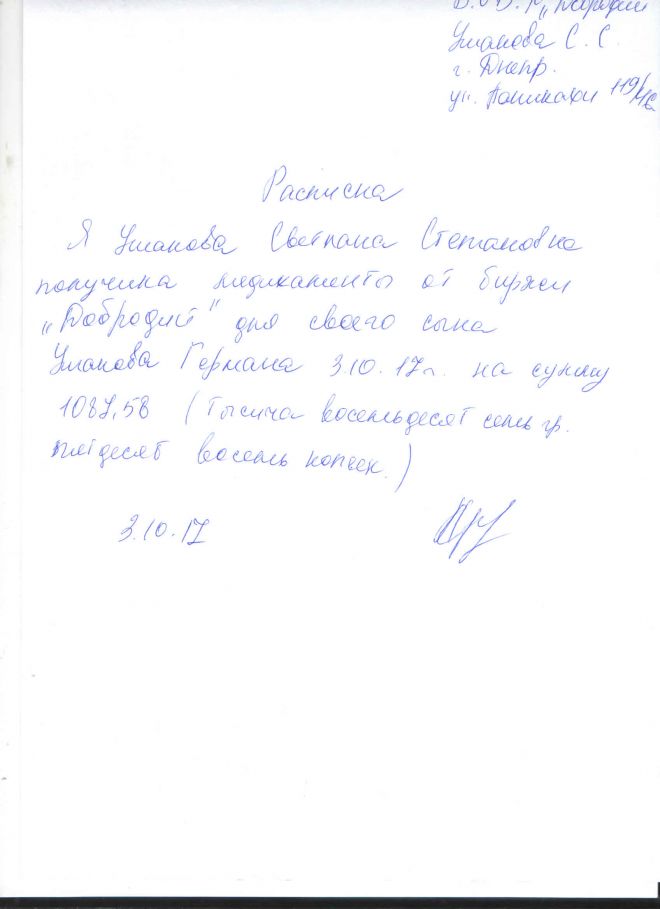 Уманова С. С.
г. Днепр.
ул. Паникахи 119/46
Расписка
Я Уманова Светлана Степановна
получила медикаменты от биржи
„Добродий" для своего сына
Уманова Германа 3.10.17г. на сумму
1087,58 (тысяча восемьдесят семь гр.
пятдесят восемь копеек.)
3.10.17